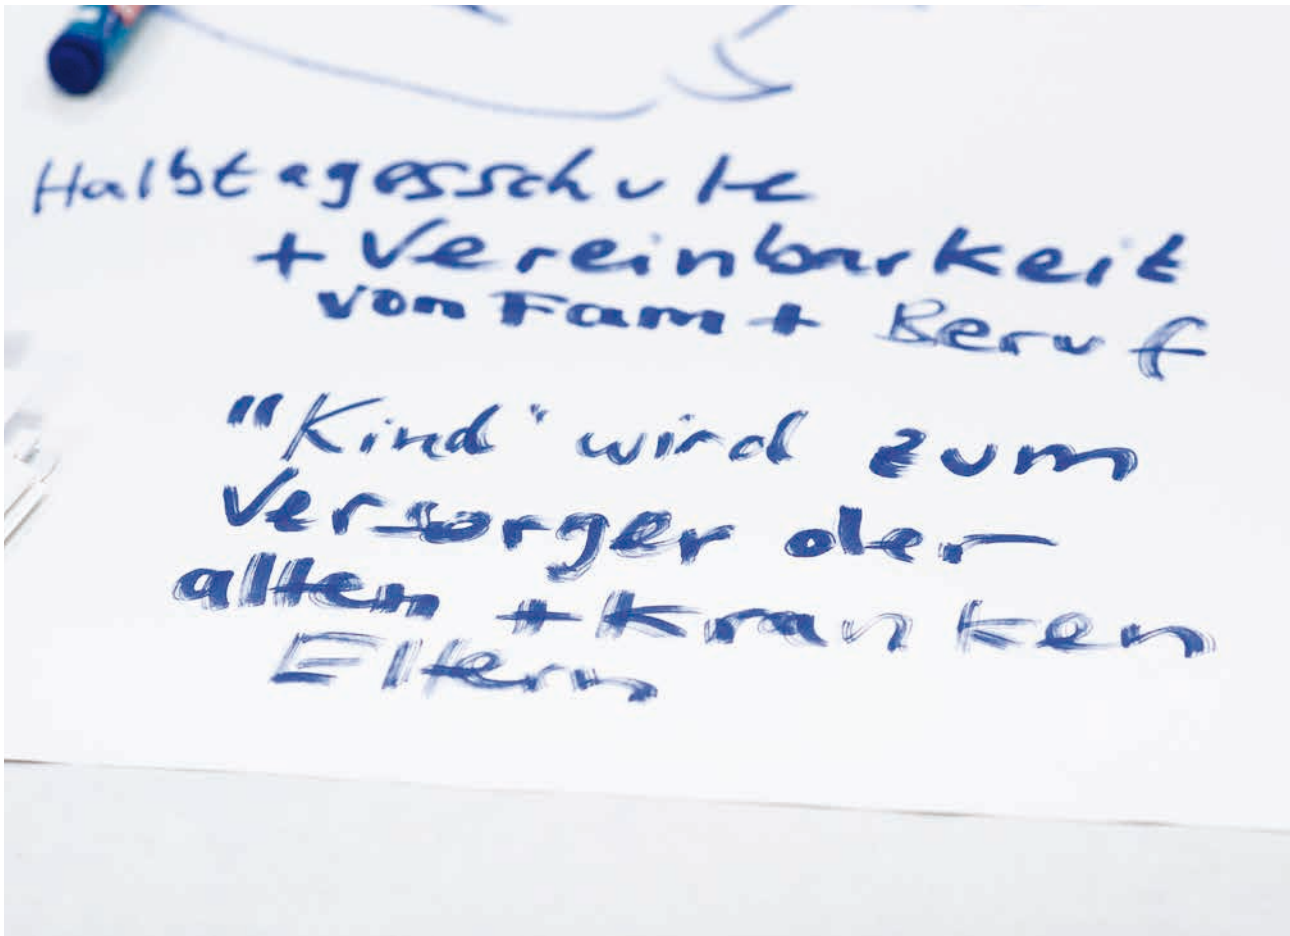 Halbtagesschule
+ Vereinbarkeit
von Fam + Beruf
"Kind" wird zum
Versorger der
alten + kranken
Eltern